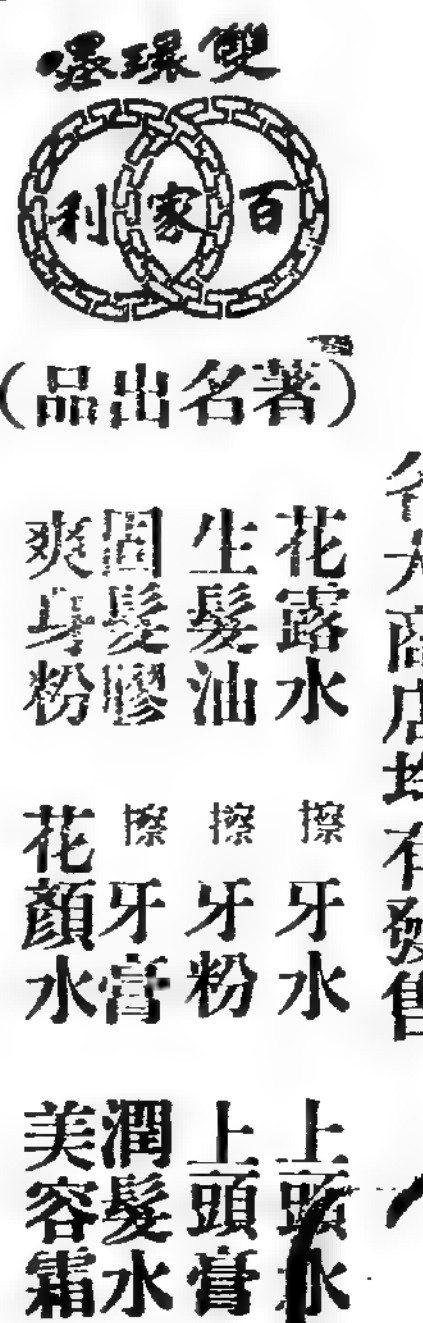 雙環嘜
百家利
(著名出品)
各大商店均有發售
花露水
生髮油
固髮膠
爽身粉
擦牙水
擦牙粉
擦牙膏
花顏水
上頭水
上頭膏
潤髮水
美容霜